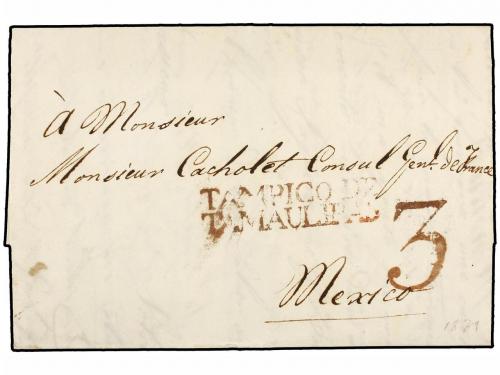 à Monsieur
Monsieur Cacholet Consul Genl. de France
TAMPICO DE
TAMAULIPAS
3
Mexico